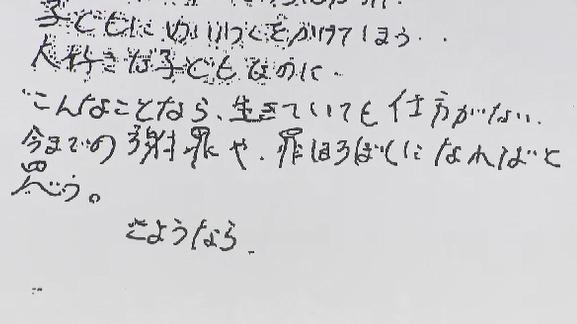 子どもにめいわくをかけてしまう..
大好きな子どもなのに.
こんなことなら、生きていても仕方がない.
今までの謝罪や、罪ほろぼしになればと
思う。
さようなら.